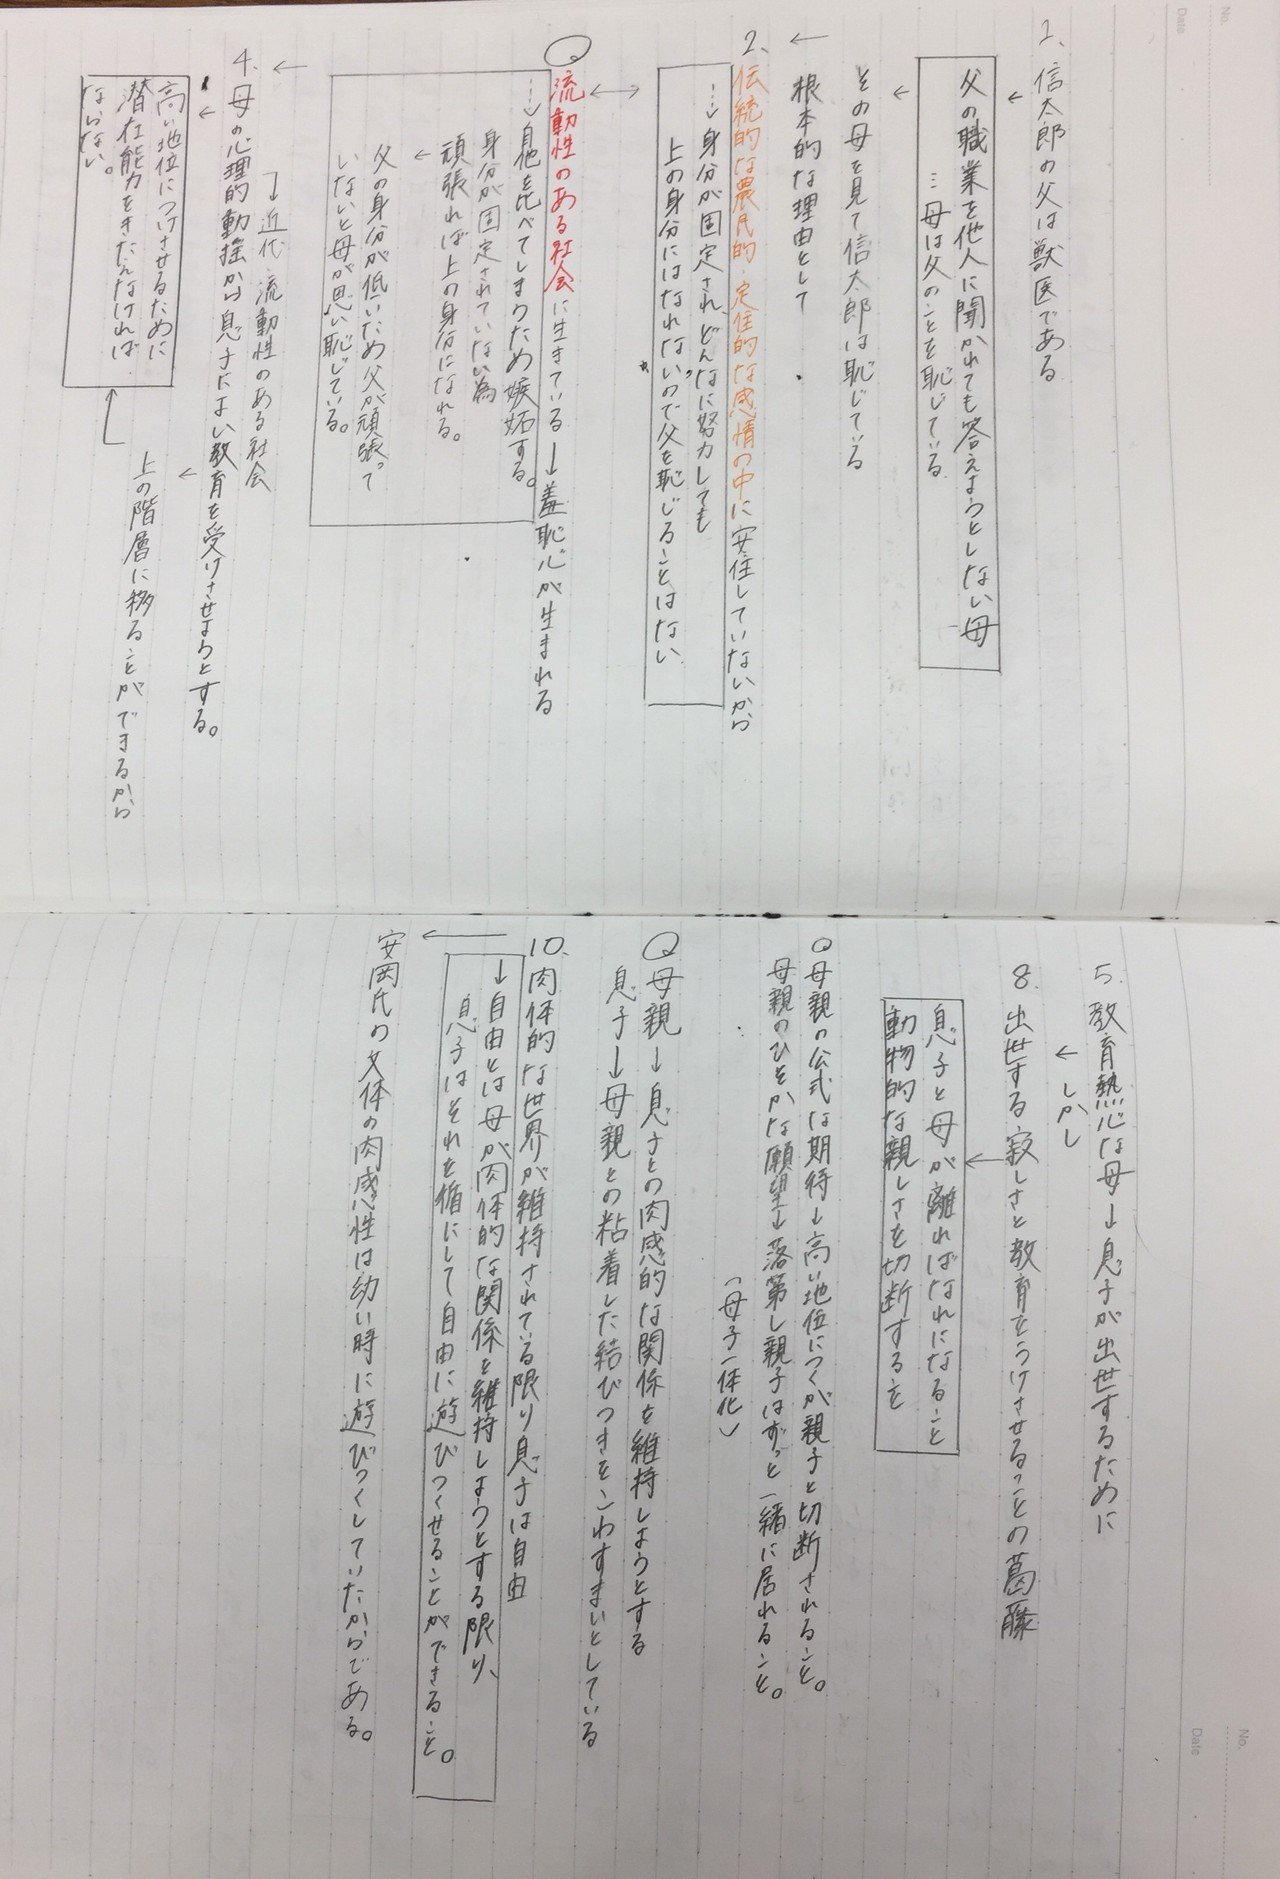 No.
Date
1、信太郎の父は獣医である
父の職業を他人に聞かれても答えようとしない母
…母は父のことを恥じている
その母を見て信太郎は恥じている
根本的な理由として
2、伝統的な農民的・定住的な感情の中に安住していないから
…→身分が固定され、どんなに努力しても
上の身分にはなれないので父を恥じることはない
流動性のある社会に生きている→羞恥心が生まれる
…→自他を比べてしまうため嫉妬する。
身分が固定されていない為
頑張れば上の身分になれる。
父の身分が低いため父が頑張って
いないと母が思い恥じている。
→近代 流動性のある社会
4、母の心理的動揺から息子によい教育を受けさせようとする。
高い地位につけさせるために
潜在能力をきたえなければ
ならない。
上の階層に移ることができるから
No.
Date
5.教育熱心な母→息子が出世するために
しかし
8.出世する寂しさと教育をうけさせることの葛藤
息子と母が離ればなれになること
動物的な親しさを切断すること
Q母親の公式な期待→高い地位につくが親子と切断されること。
母親のひそかな願望→落第し親子はずっと一緒に居れること。
(母子一体化)
Q母親→息子との肉感的な関係を維持しようとする
息子→母親との粘着した結びつきをこわすまいとしている
10.肉体的な世界が維持されている限り息子は自由
→自由とは母が肉体的な関係を維持しようとする限り、
息子はそれを循にして自由に遊びつくせることができること。
安岡氏の文体の肉感性は幼い時に遊びつくしていたからである。